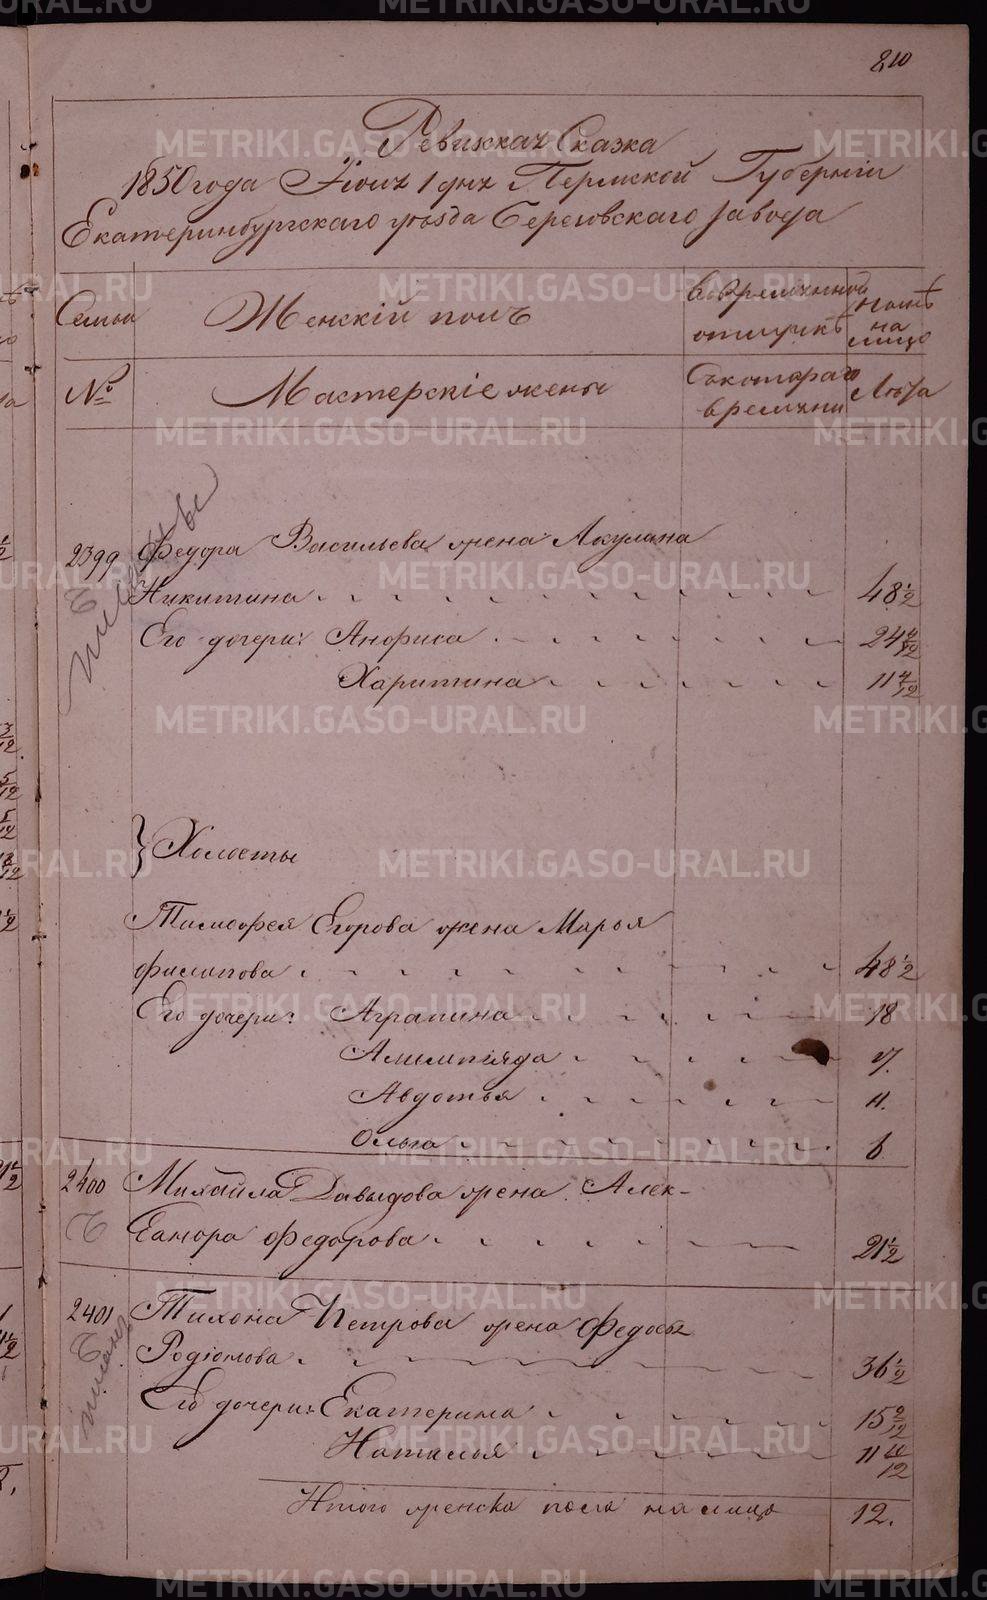 810
Ревижская Сказка
1850 года Іюня 1 дня Пермской Губерніи
Екатеринбургскаго уѣзда Березовскаго завода
Семьи
Женскій полъ
Во временной отлучкѣ
Налицо
№
Мастерскіе жены
Съ котораго времени
Лѣта
2399 Федора Васильева жена Акулина
Никитина 48 1/2
Его дочери: Анфиса 24 4/12
Харитина 11 4/12
Холосты
Тимофея Егорова жена Марья
Филипова 48 1/2
Его дочери: Аграпина 18
Алимпіяда 17.
Авдотья 11.
Ольга 6
2400 Михайла Давыдова жена Алек-
сандра Федорова 21 1/2
2401 Тихона Петрова жена Федосья
Родіонова 36 1/2
Его дочери: Екатерина 15 9/12
Наталья 11 10/12
Итого женска пола на лицо 12.
METRIKI.GASO-URAL.RU